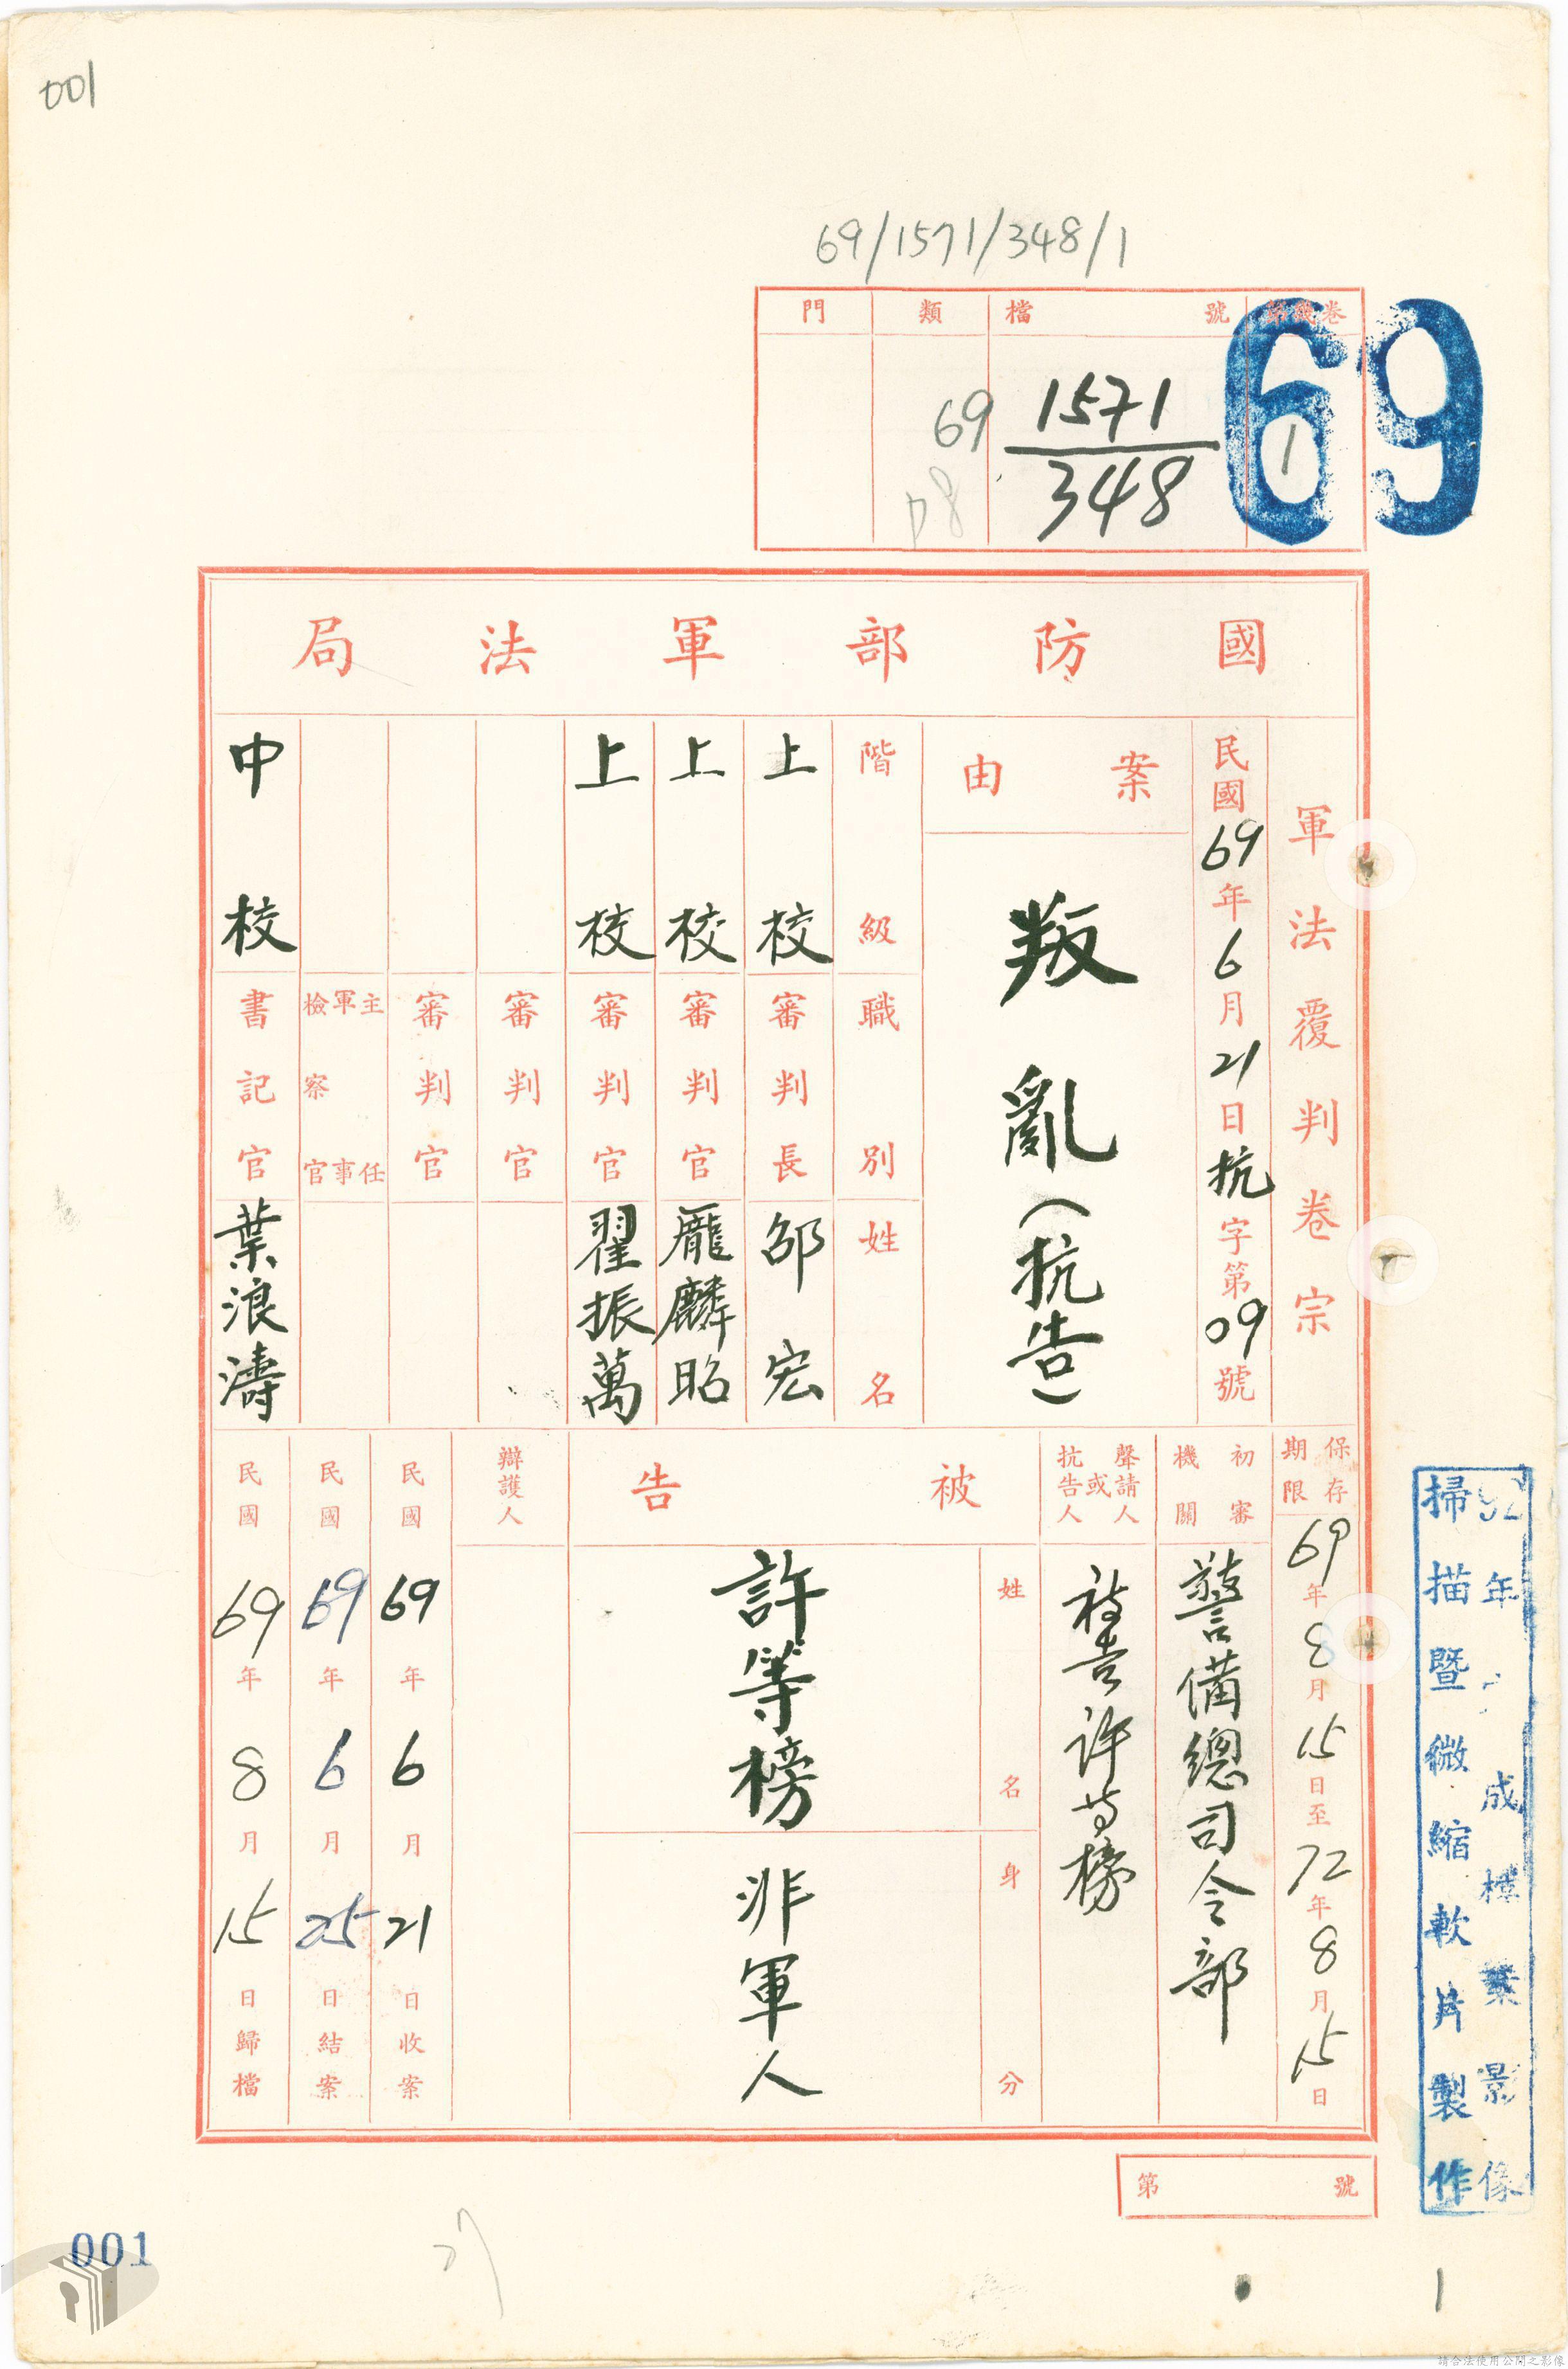 001
69/1571/348/1
門
類
檔號
69
1571
348
1
69
國防部軍法局
軍法覆判卷宗
民國69年6月21日抗字第09號
案由
叛亂(抗告)
階級 職別 姓名
上校 審判長 邵宏
上校 審判官 龎麟昭
上校 審判官 翟振萬
審判官
審判官
主任軍事檢察官
中校 書記官 葉浪濤
保存期限
69年8月15日至72年8月15日
初審機關
警備總司令部
聲請人或抗告人
被告許等榜
被告
姓名
許等榜
身分
非軍人
辯護人
民國69年6月21日收案
民國69年6月25日結案
民國69年8月15日歸檔
第號
年 成檔案影像
掃描暨微縮軟片製作
001
1
請合法使用公開之影像